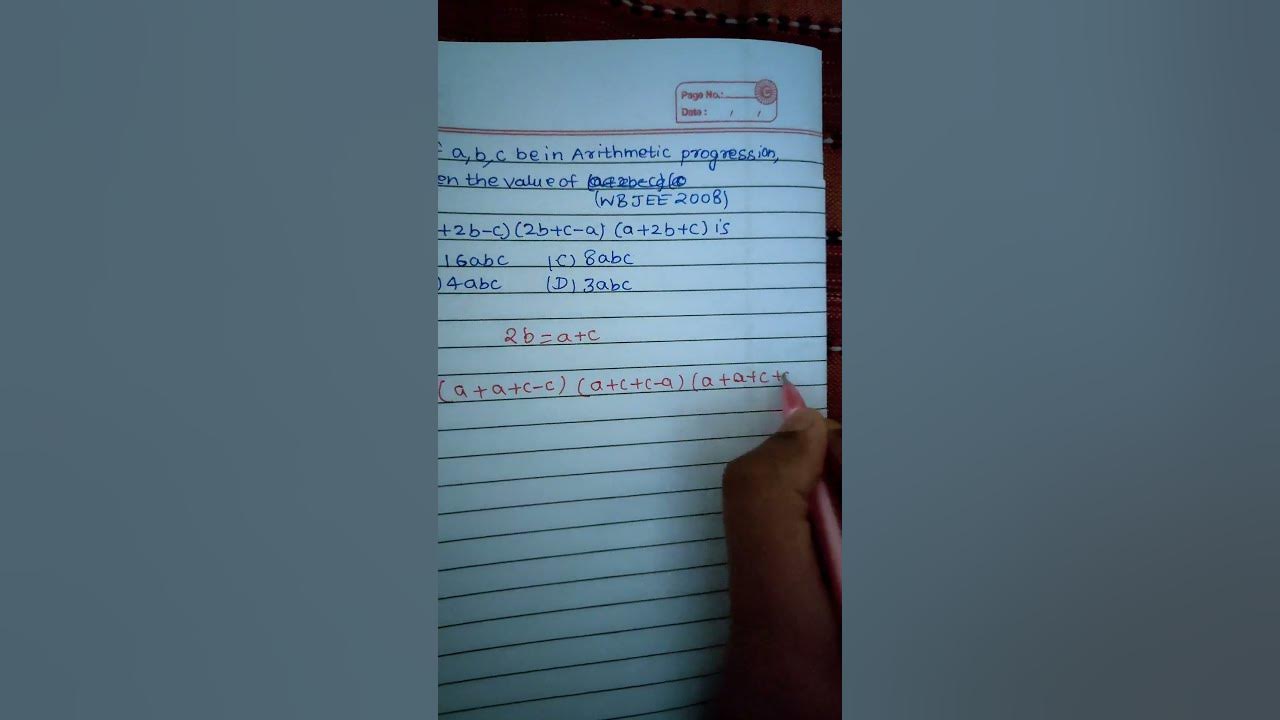 Page No.:
Date : / /
a, b, c be in Arithmetic progression,
en the value of
(WBJEE 2008)
+2b-c) (2b+c-a) (a+2b+c) is
16abc (C) 8abc
) 4abc (D) 3abc
2b = a+c
(a+a+c-c) (a+c+c-a) (a+a+c+c